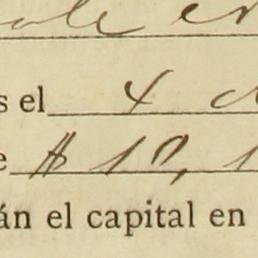 s el 4
e $ 10, 1
án el capital en